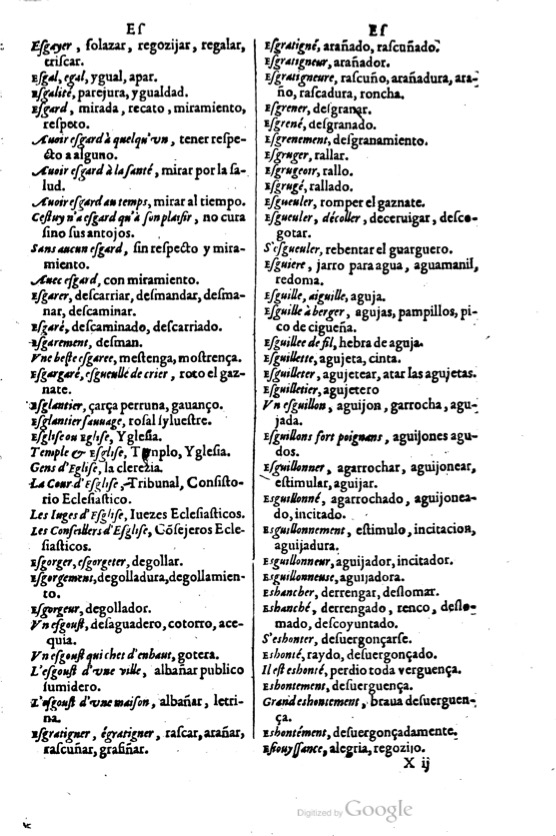 Eſ
Eſgayer, ſolazar, regozijar, regalar,
triſcar.
Eſgal, egal, ygual, apar.
Eſgalité, parejura, ygualdad.
Eſgard, mirada, recato, miramiento,
reſpeto.
Auoir eſgard à quelqu'vn, tener reſpe-
cto a alguno.
Auoir eſgard à la ſanté, mirar por la ſa-
lud.
Auoir eſgard au temps, mirar al tiempo.
Ceſtuy n'a eſgard qu'à ſon plaiſir, no cura
ſino ſus antojos.
Sans aucun eſgard, ſin reſpecto y mira-
miento.
Auec eſgard, con miramiento.
Eſgarer, deſcarriar, deſmandar, deſma-
nar, deſcaminar.
Eſgaré, deſcaminado, deſcarriado.
Eſgarement, deſman.
Vne beſte eſgaree, meſtenga, moſtrença.
Eſgargaré, eſgueullé de crier, roto el gaz-
nate.
Eſglantier, çarça perruna, gauanço.
Eſglantier ſauuage, roſal ſylueſtre.
Eſgliſe ou Egliſe, Ygleſia.
Temple & Eſgliſe, Templo, Ygleſia.
Gens d'Egliſe, la clerezia.
La Cour d'Eſgliſe, Tribunal, Conſiſto-
rio Ecleſiaſtico.
Les Iuges d'Eſgliſe, Iuezes Ecleſiaſticos.
Les Conſeillers d'Eſgliſe, Cõſejeros Ecle-
ſiaſticos.
Eſgorger, eſgorgeter, degollar.
Eſgorgement, degolladura, degollamien-
to.
Eſgorgeur, degollador.
Vn eſgouſt, deſaguadero, cotorro, ace-
quia.
Vn eſgouſt qui chet d'enhaut, gotera.
L'eſgouſt d'vne ville, albañar publico
ſumidero.
L'eſgouſt d'vne maiſon, albañar, letri-
na.
Eſgratigner, égratigner, raſcar, arañar,
raſcuñar, grafiñar.
Eſ
Eſgratigné, arañado, raſcuñado.
Eſgratigneur, arañador.
Eſgratigneure, raſcuño, arañadura, ara-
ño, raſcadura, roncha.
Eſgrener, deſgranar.
Eſgrené, deſgranado.
Eſgrenement, deſgranamiento.
Eſgruger, rallar.
Eſgrugeoir, rallo.
Eſgrugé, rallado.
Eſgueuler, romper el gaznate.
Eſgueuler, décoller, deceruigar, deſco-
gotar.
S'eſgueuler, rebentar el guarguero.
Eſguiere, jarro para agua, aguamanil,
redoma.
Eſguille, aiguille, aguja.
Eſguille à berger, agujas, pampillos, pi-
co de cigueña.
Eſguillee de fil, hebra de aguja.
Eſguillette, agujeta, cinta.
Eſguilleter, agujetear, atar las agujetas.
Eſguilletier, agujetero
Vn eſguillon, aguijon, garrocha, agu-
jada.
Eſguillons fort poignans, aguijones agu-
dos.
Eſguillonner, agarrochar, aguijonear,
eſtimular, aguijar.
Esguillonné, agarrochado, aguijonea-
do, incitado.
Esguillonnement, eſtimulo, incitacion,
aguijadura.
Esguillonneur, aguijador, incitador.
Esguillonneuse, aguijadora.
Eshancher, derrengar, deſlomar.
Eshanché, derrengado, renco, deſlo-
mado, deſcoyuntado.
S'eshonter, deſuergonçarſe.
Eshonté, raydo, deſuergonçado.
Il eſt eshonté, perdio toda verguença.
Eshontement, deſuerguença.
Grand eshontement, braua deſuerguen-
ça.
Eshontément, deſuergonçadamente.
Eſiouyſſance, alegria, regozijo.
X ij
Digitized by Google